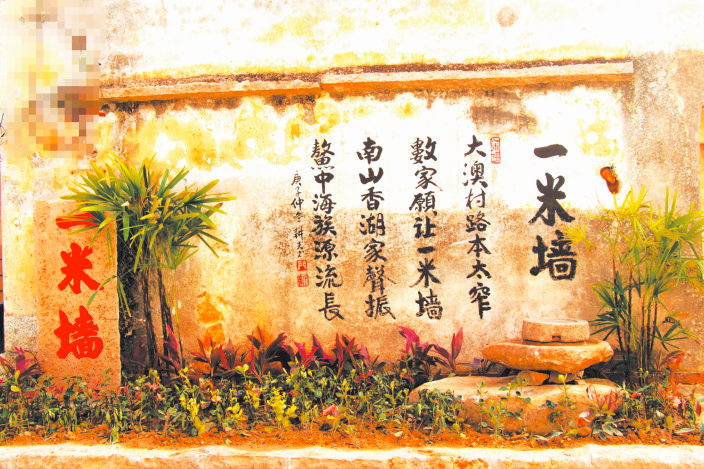 一米墙
大澳村路本太窄
數家願让一米墙
南山香湖家聲振
鰲中海族源流長
一米墙